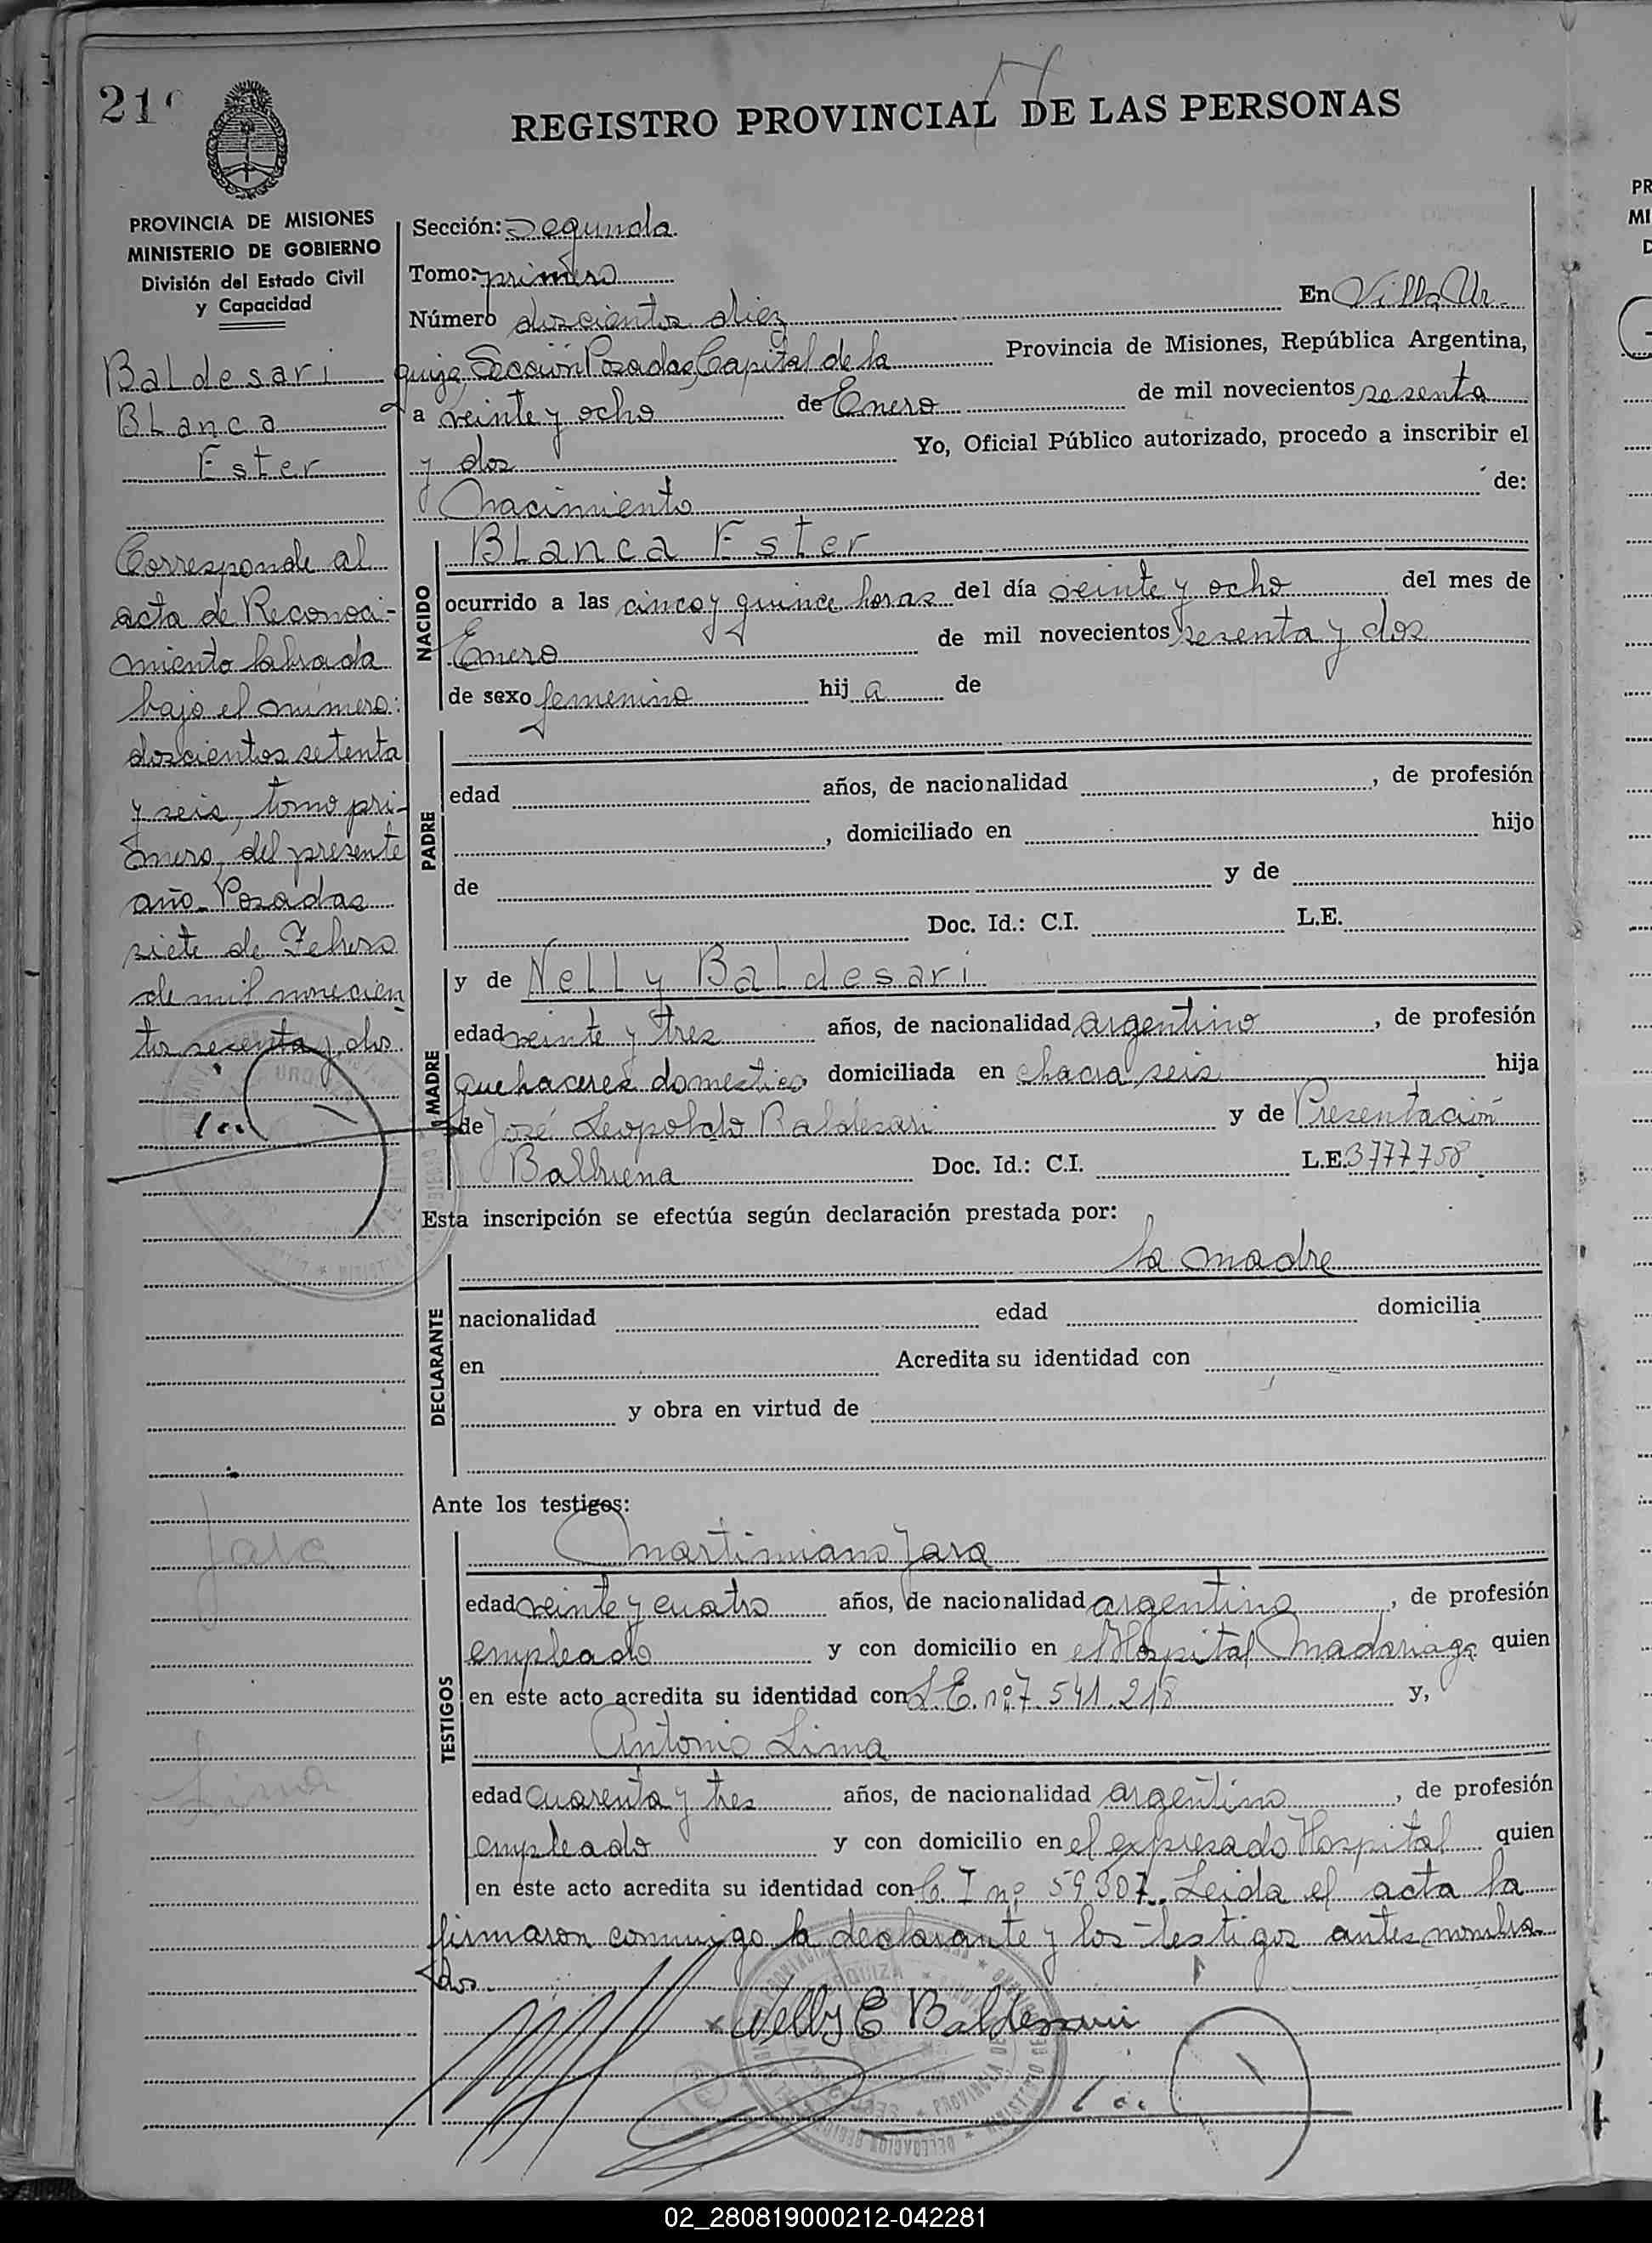 21
REGISTRO PROVINCIAL DE LAS PERSONAS
PROVINCIA DE MISIONES
MINISTERIO DE GOBIERNO
División del Estado Civil
y Capacidad
Baldesari
Blanca
Ester
Corresponde al
acta de Reconoci-
miento labrada
bajo el número:
doscientos setenta
y seis, tomo pri-
mero, del presente
año. Posadas
siete de Febrero
de mil novecien
tos sesenta y dos.
Jara
Lima
Sección: Segunda.
Tomo: primero
Número doscientos diez En Villa Ur-
quiza, Sección Posadas, Capital de la Provincia de Misiones, República Argentina,
a veinte y ocho de Enero de mil novecientos sesenta
y dos Yo, Oficial Público autorizado, procedo a inscribir el
nacimiento de:
NACIDO
Blanca Ester
ocurrido a las cinco y quince horas del día veinte y ocho del mes de
Enero de mil novecientos sesenta y dos
de sexo femenino hij a de
PADRE
edad años, de nacionalidad , de profesión
, domiciliado en hijo
de y de
Doc. Id.: C.I. L.E.
MADRE
y de Nelly Baldesari
edad veinte y tres años, de nacionalidad argentino , de profesión
quehaceres domestico, domiciliada en chacra seis hija
de José Leopoldo Baldesari y de Presentación
Balbuena Doc. Id.: C.I. L.E. 3777758
Esta inscripción se efectúa según declaración prestada por:
la madre
DECLARANTE
nacionalidad edad domicilia
en Acredita su identidad con
y obra en virtud de
Ante los testigos:
TESTIGOS
Martimiano Jara
edad veinte y cuatro años, de nacionalidad argentino , de profesión
empleado y con domicilio en el Hospital Madariaga quien
en este acto acredita su identidad con L.E. nº 7.541.218 y,
Antonio Lima
edad cuarenta y tres años, de nacionalidad argentino , de profesión
empleado y con domicilio en el expresado Hospital quien
en este acto acredita su identidad con C. I nº 59307. Leida el acta la
firmaron conmigo la declarante y los testigos antes nombra-
dos.
x Nelly E Baldesari
02_280819000212-042281